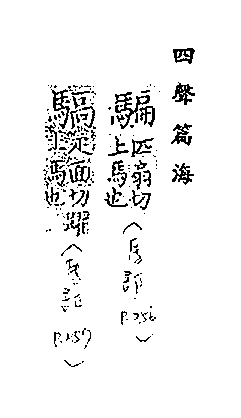 四聲篇海
騙匹扇切
上馬也
(馬部
P.256)
面切躍
上馬也
(馬部
P.257)